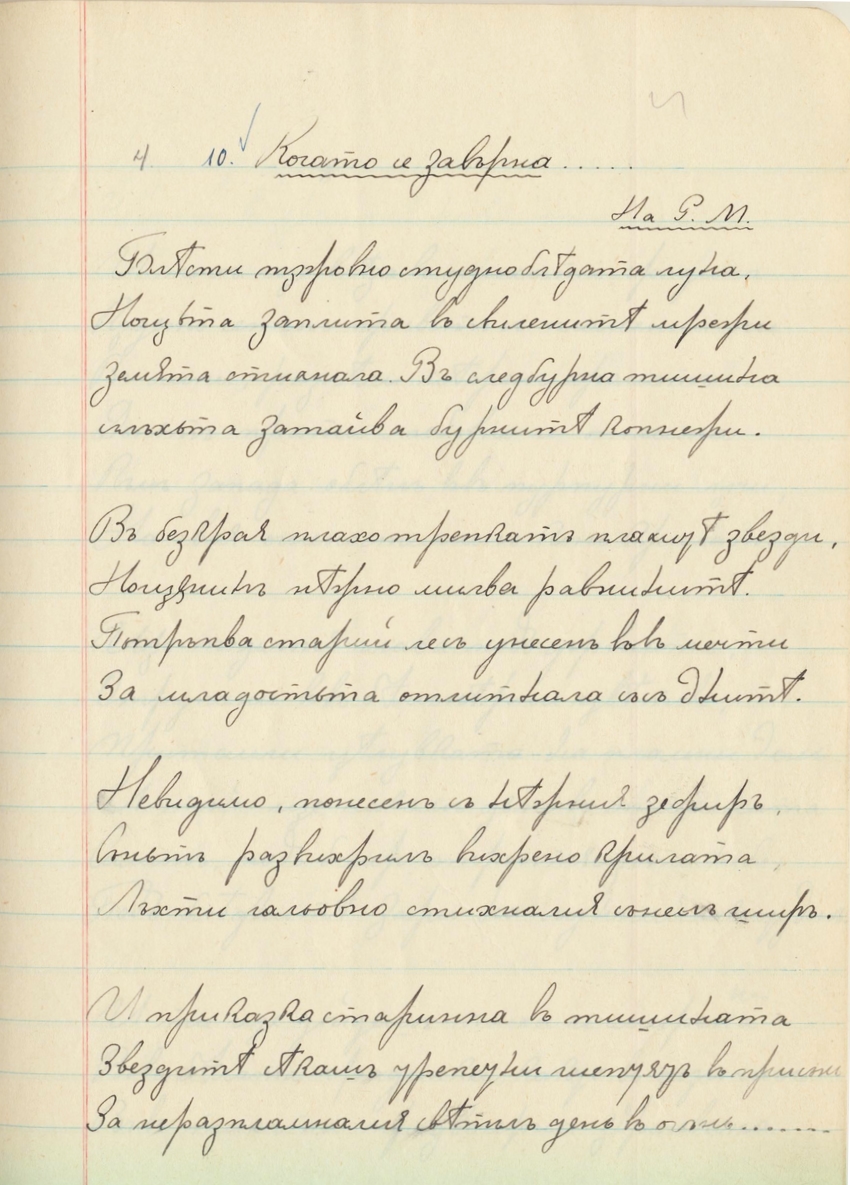 4 10. Когато се завърна.....
На Р. М.
Блѣсти тържовно студно блѣдата луна,
Нощьта заплита въ свиленитѣ мрежи
земята стихнала. Въ следбурна тишина
скръбьта затайва бурнитѣ копнежи.
Въ безкрая плахо трепкатъ плакущѣ звезди,
Нощникъ нѣжно милва равнинитѣ.
Потръпва старий лесъ унесенъ въвъ мечти
За младостьта отлитнала съсъ днитѣ.
Невидимо, понесенъ съ нѣжния зефиръ,
Сънътъ развихрилъ вихрено крилата
Лъхти гальовно стихналия снененъ ширъ.
И приказка старинна въ тишината
Звездитѣ сѣкашъ
За неразпламналия свѣтълъ день въ огънь........